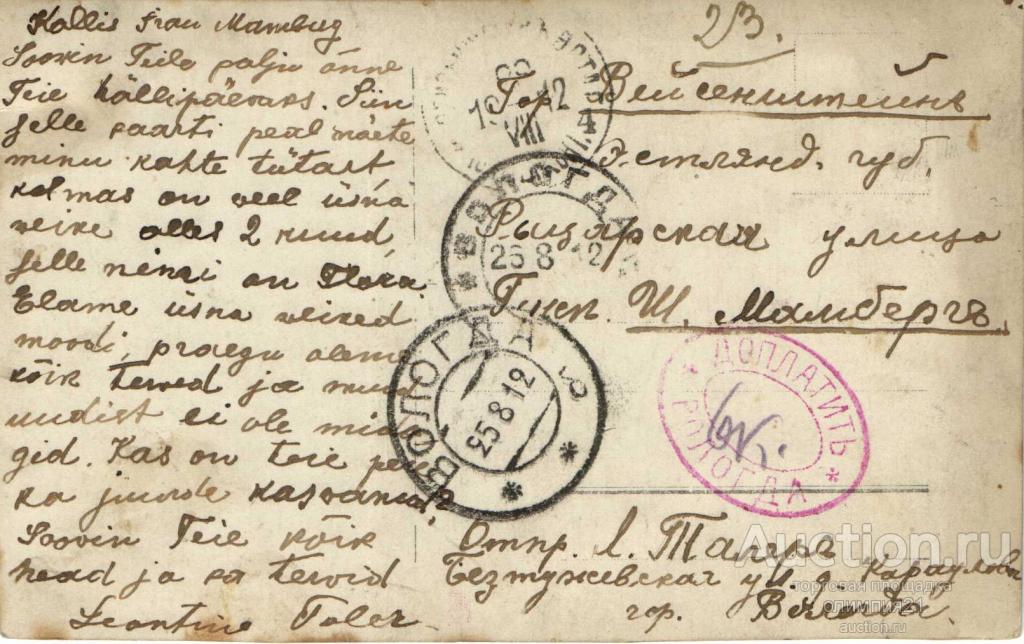 Kallis Frau Mamberg
Soovin Teile palju õnne
Teie hällipäevaks. Siin
selle kaarti peal näete
minu kahte tütart
kolmas on veel üsna
veike alles 2 kuud,
selle nimi on Flora.
Elame üsna veiked
moodi, praegu oleme
kõik terved ja muud
uudist ei ole min
gid. Kas on teie pere
ka juurde kasvanud?
Soovin Teie kõik
head ja ka tervid
Leontine Taler
23.
Гор. Вейсенштейнъ
Эстлянд. губ.
Рыцарская улица
Гжп. Ш. Мамбергъ
Отпр. Л. Талеръ
Безтужевская ул.
гор. Вологда.
13 VIII 12
4
ВОЛОГДА
26 8 12
ВОЛОГДА
25 8 12
ДОПЛАТИТЬ
ВОЛОГДА
6к.
Auction.ru
торговая площадка
олимпия21
auction.ru